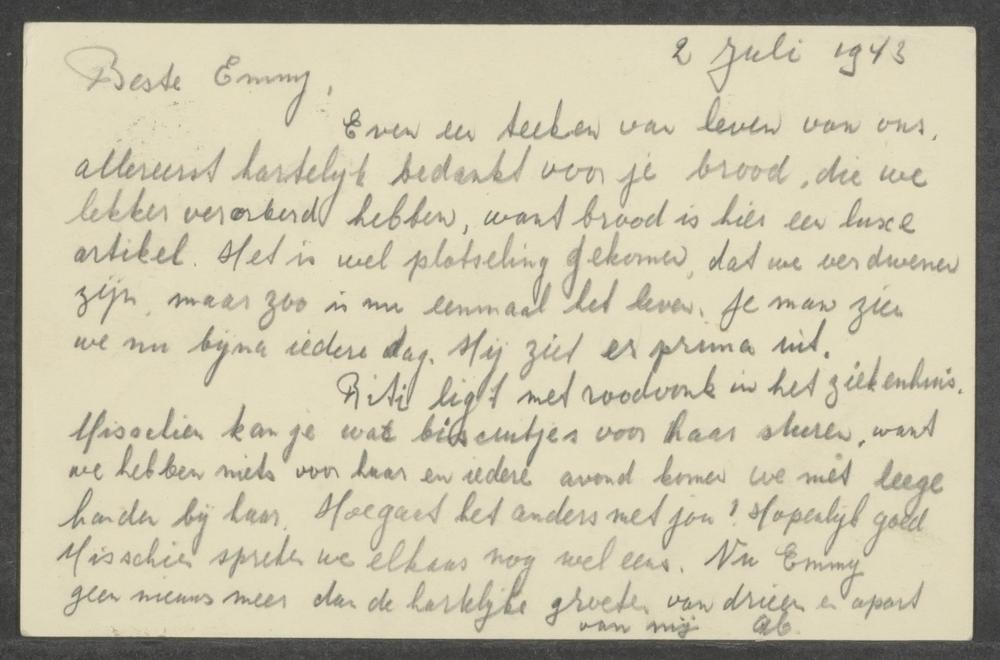 2 Juli 1943
Beste Emmy,
Even een teeken van leven van ons,
allereerst hartelijk bedankt voor je brood, die we
lekker verorberd hebben, want brood is hier een luxe
artikel. Het is wel plotseling gekomen, dat we verdwenen
zijn, maar zoo is nu eenmaal het leven. Je man zien
we nu bijna iedere dag. Hij ziet er prima uit.
Riti ligt met roodvonk in het ziekenhuis.
Misschien kan je wat biscuitjes voor haar sturen, want
we hebben niets voor haar en iedere avond komen we met leege
handen bij haar. Hoe gaat het anders met jou? Hopenlijk goed
Misschien spreken we elkaar nog wel eens. Nu Emmy
geen nieuws meer dan de hartelijke groeten van drieen en apart
van mij Ab.